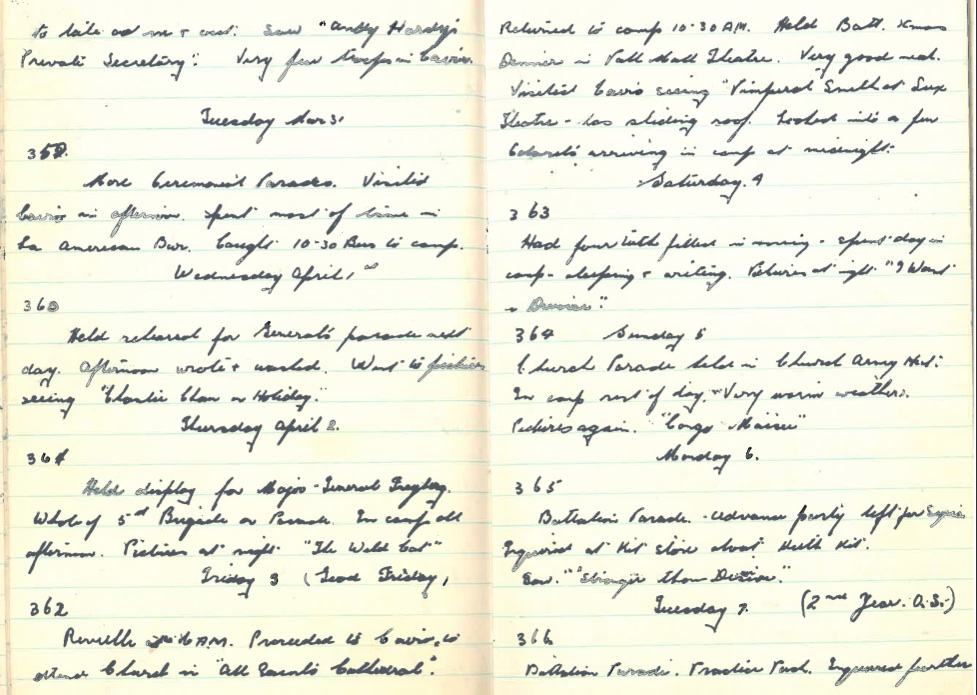 to take me out. Saw "Andy Hardy's
Private Secretary". Very few troops in Cairo.
Tuesday Mar 31
359.
More Ceremonial Parades. Visited
Cairo in afternoon. Spent most of time in
La American Bar. Caught 10-30 Bus to camp.
Wednesday April 1st
360
Held rehearsal for General's parade next
day. Afternoon wrote + washed. Went to pictures
seeing "Charlie Chan on Holiday."
Thursday April 2.
361
Held display for Major-General Freyberg.
Whole of 5th Brigade on Parade. In camp all
afternoon. Pictures at night "The Wild Cat"
Friday 3 (Good Friday)
362
Reveille 6 A.M. Proceeded to Cairo to
attend Church in "All Saints Cathedral".
Returned to camp 10-30 AM. Held Batt. Xmas
Dinner in Pall Mall Theatre. Very good meal.
Visited Cairo seeing "Pimpernel Smith at Lux
Theatre - has sliding roof. Looked into a few
Cabarets arriving in camp at midnight.
Saturday. 4
363
Had four teeth filled in morning - spent day in
camp - sleeping + writing. Pictures at night. "I Want
a Divorce".
364 Sunday 5
Church Parade held in Church Army Hut.
In camp rest of day. Very warm weather.
Pictures again. "Congo Maisie"
Monday 6.
365
Battalion Parade. - Advance party left for Syria
Enquired at Kit Store about Kit.
Saw. "Stronger than Desire."
Tuesday 7. (2nd Year. O.S.)
366
Battalion Parade. Practice Pack. Enquired further